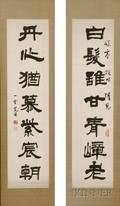 白髮雖甘青嶂老
丹心猶慕紫宸朝